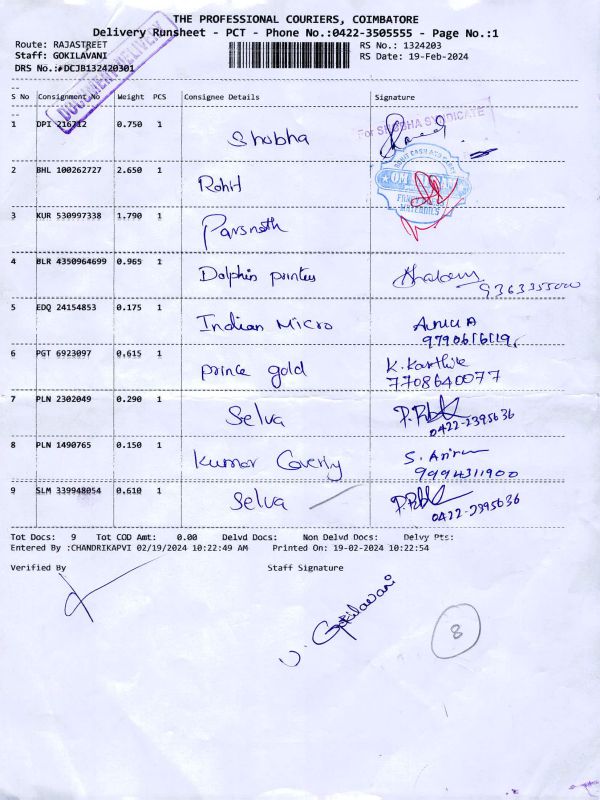 THE PROFESSIONAL COURIERS, COIMBATORE
Delivery Runsheet - PCT - Phone No.:0422-3505555 - Page No.:1
Route: RAJASTREET
Staff: GOKILAVANI
DRS No.: DCJB132420301
RS No.: 1324203
RS Date: 19-Feb-2024
DOCUMENT DELIVERY
S No Consignment No Weight PCS Consignee Details Signature
For SHOBHA SYNDICATE
1 DPI 216712 0.750 1 Shobha
2 BHL 100262727 2.650 1 Rohit
OM
MATERIALS
3 KUR 530997338 1.790 1 Parsnath
4 BLR 4350964699 0.965 1 Dolphin printers
9363355000
5 EDQ 24154853 0.175 1 Indian Micro
6 PGT 6923097 0.615 1 prince gold K. Karthik
7708640077
7 PLN 2302049 0.290 1 Selva
0422-2395636
8 PLN 1490765 0.150 1 Kumar
9994311900
9 SLM 339948054 0.610 1 Selva
0422-2395636
Tot Docs: 9 Tot COD Amt: 0.00 Delvd Docs: Non Delvd Docs: Delvy Pts:
Entered By :CHANDRIKAPVI 02/19/2024 10:22:49 AM Printed On: 19-02-2024 10:22:54
Verified By Staff Signature
V. Gokilavani
8